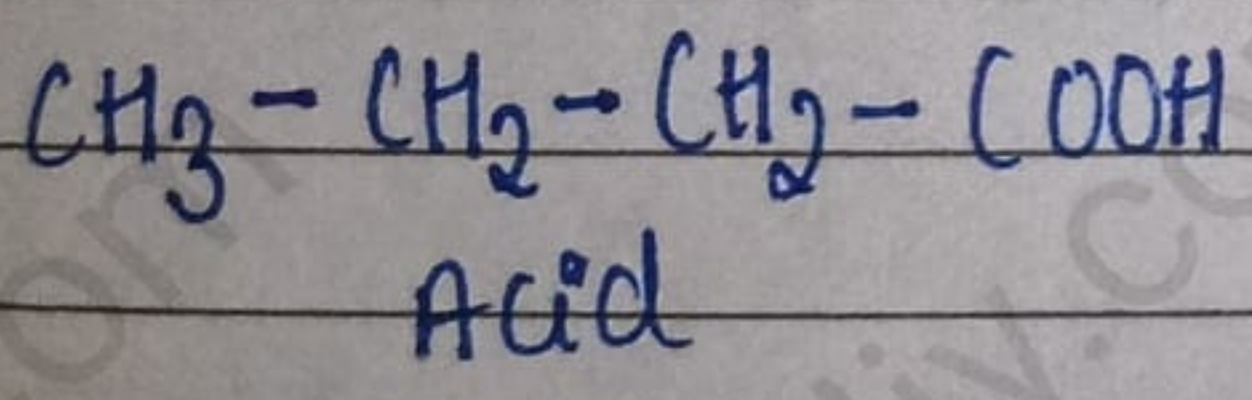 CH3 - CH2 - CH2 - COOH
Acid